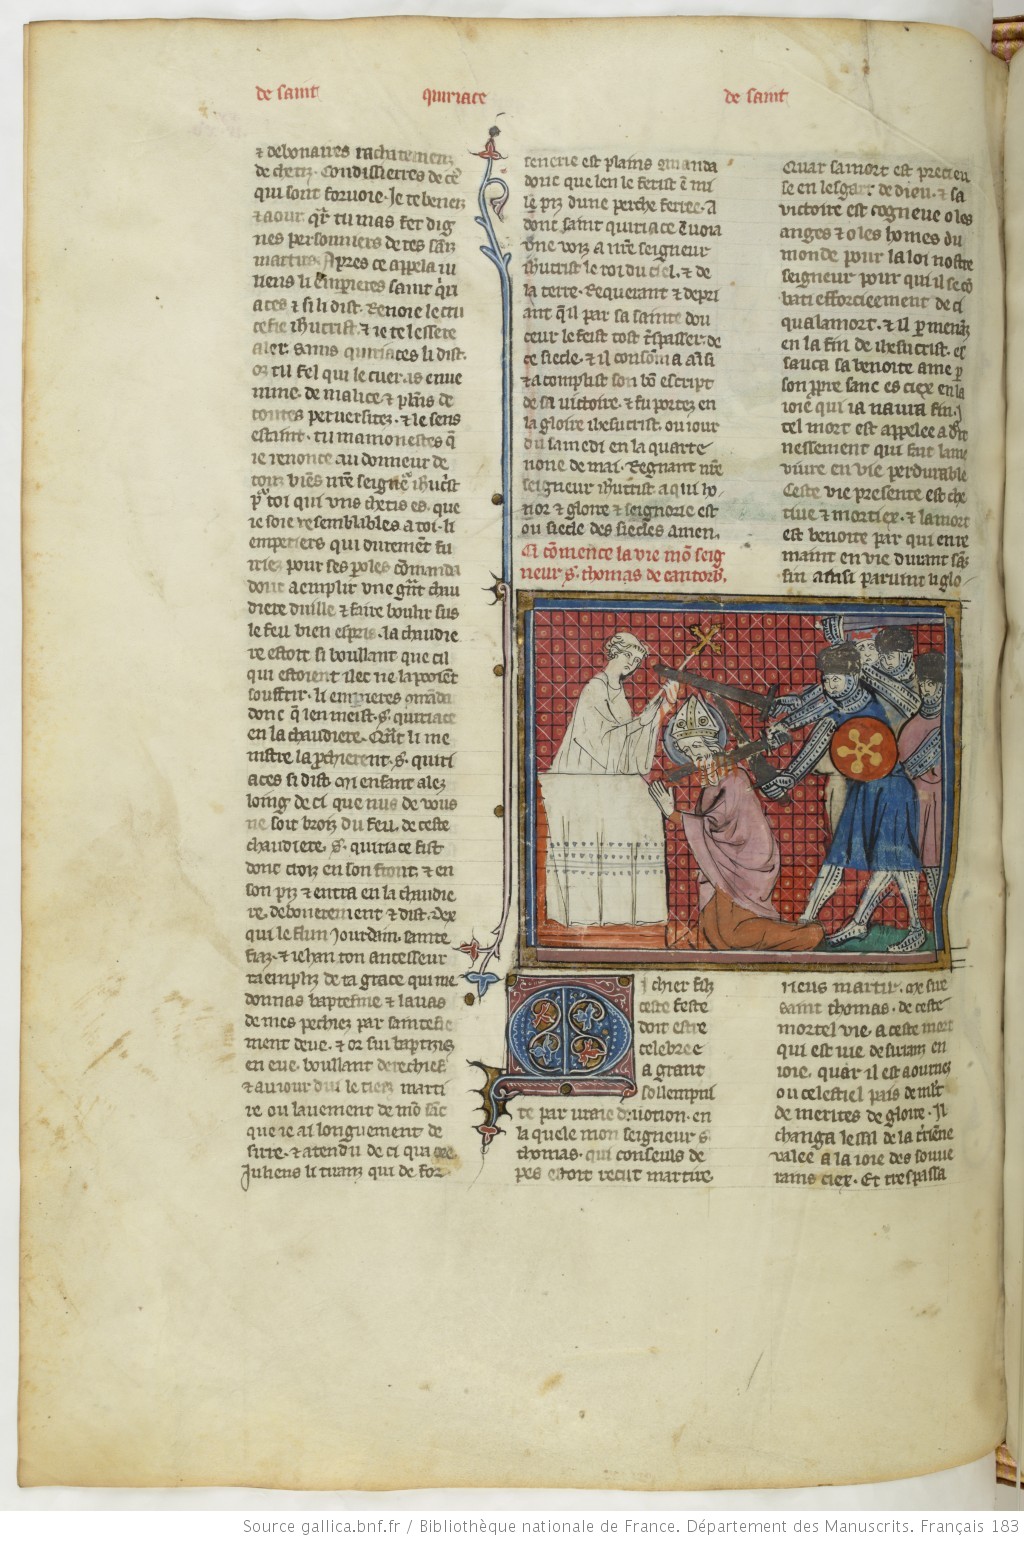 de saint quiriace de saint
& debonaires rachatemenz
de chetiz. Condissierres de ce
qui sont forvoie. Je te beneiz
& aour qr tu mas fet dig
nes personniers de tes sainz
martirs. Apres ce appela iu
liens li emperieres saint qri
aces & si li dist. Renoie le cru
cefie ihucrist & ie te lesserè
aler. Sains quiriaces li dist.
tu fel qui le cuer as enve
nime. de malice. & plains de
toutes perversitez. & le sens
estaint. tu mamonestes q̃
ie renonce au donneur de
touz biẽs nr̃e seignẽ ihucrist
pr toi qui vns chetis es. que
ie soie resemblables a toi. li
emperiers qui durement fu
iriez pour ses poles cõmanda
dont aemplir vne grãt chau
diere duille & faire boulir sus
le feu bien espris. la chaudie
re estoit si boullant que cil
qui estoient ilec ne la poient
souffrir. li emperieres cõmãda
donc q̃ len meist. s. quiriace
en la chaudiere. Qñt li me
nistre laprchierent. s. quiri
aces si dist. mi enfant alez
loing de ci que nus de vous
ne soit broiz du feu. de ceste
chaudiere. s. quiriace fist
donc croiz en son front. & en
son piz & entra en la chaudie
re. debonerement & dist. Dex
qui le flun Jourdain. saintè
fiaz. & iehan ton ancesseur
raemplis de ta grace qui me
donnas baptesme & lavas
de mes pechiez par sainctefie
ment deve. & or sui baptizis
en eve. boullant derechief
& auiour dui le tierz marti
re ou lavement de mõ sanc
que ie ai longuement de
sirre. & atendu de ci qui ore.
Juliens li tiranz qui de for
senerie est plains cõmanda
donc que len le ferist ẽ mi
le piz dune perche ferree. A
dont saint quiriace envoia
vne voiz a nr̃e seigneur
ihucrist le roi du ciel. & de
la terre. Requerant & depri
ant q̃ il par sa sainte dou
ceur le feist tost trespasser. de
ce siecle. & il consõma aĩsi
& acomplist son bõ escript
de sa victoire. & fu portez en
la gloire ihesucrist. ou iour
du samedi en la quarte
none de mai. Regnant nr̃e
seigneur ihucrist a qui ho
nor & gloire & seignorie est
ou siecle des siecles amen.
Ci cõmence la vie mõ seig
neur s. thomas de cantorb.
Michier filz
ceste feste
doit estre
celebree
a grant
sollempni
te par vraie devotion. en
la quele mon seigneur s.
thomas. qui conseuls de
pes estoit recut martire.
Quar sa mort est precieu
se en lesgart de dieu. & sa
victoire est cogneue o les
anges & o les homes du
monde pour la loi nostre
seigneur pour qui il se cõ
bati efforcieement de ci
qua la mort. & il permenãz
en la fin de ihesucrist. es
sauca sa benoite ame p
son ppre sanc es ciex en la
ioie qui ia naura fin.
tel mort est appelee adõr
nessement qui fait lame
vivre en vie perdurable
Ceste vie presente est che
tive & mortiex. & la mort
est benoite par qui en re
maint en vie durant sãz
fin ainsi parvint li glo
rieus martir. que sire
saint thomas. de ceste
mortel vie. a ceste mort
qui est vie de suram en
ioie. quar il est aournez
ou celestiel pais de mlt
de merites de gloire. Il
changa lessil de la tr̃iẽne
valee a la ioie des souve
rains ciex. Et trespassa
Source gallica.bnf.fr / Bibliothèque nationale de France. Département des Manuscrits. Français 183